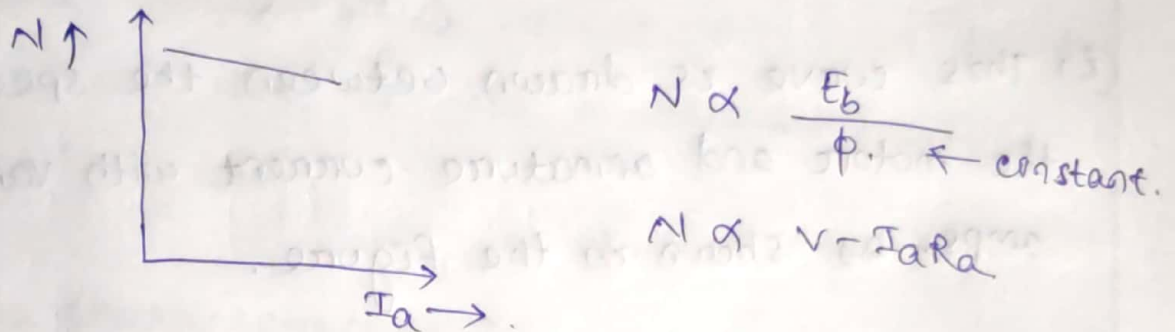 N ↑
N ∝ E_b / φ. ← constant.
N ∝ V - I_a R_a
I_a →.